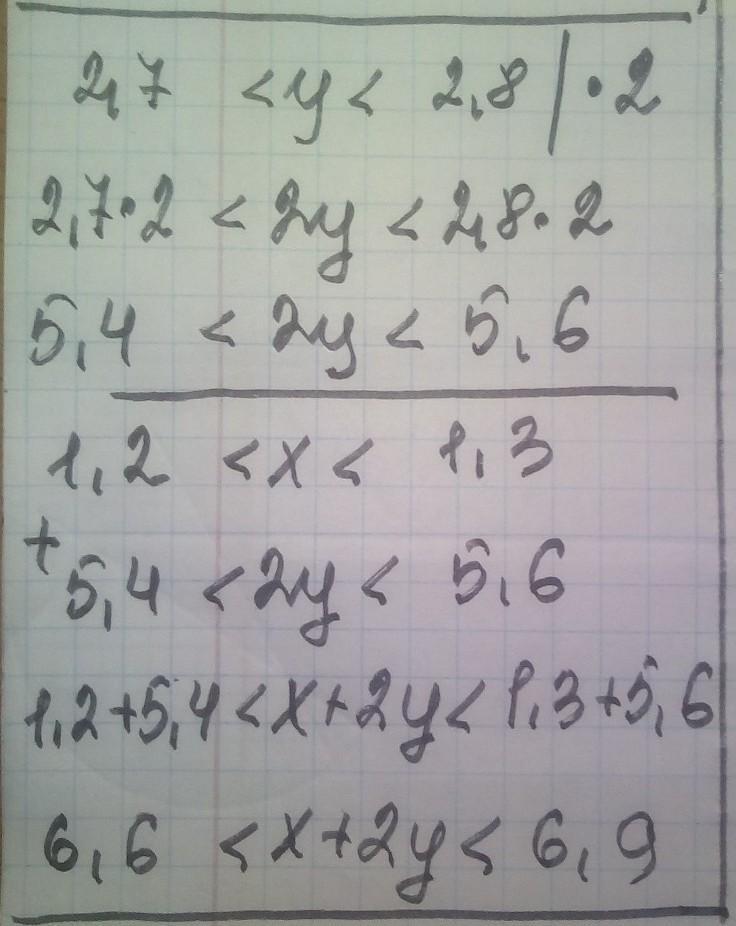 2,7 < y < 2,8 | · 2
2,7·2 < 2y < 2,8·2
5,4 < 2y < 5,6
1,2 < x < 1,3
+
5,4 < 2y < 5,6
1,2+5,4 < x+2y < 1,3+5,6
6,6 < x+2y < 6,9